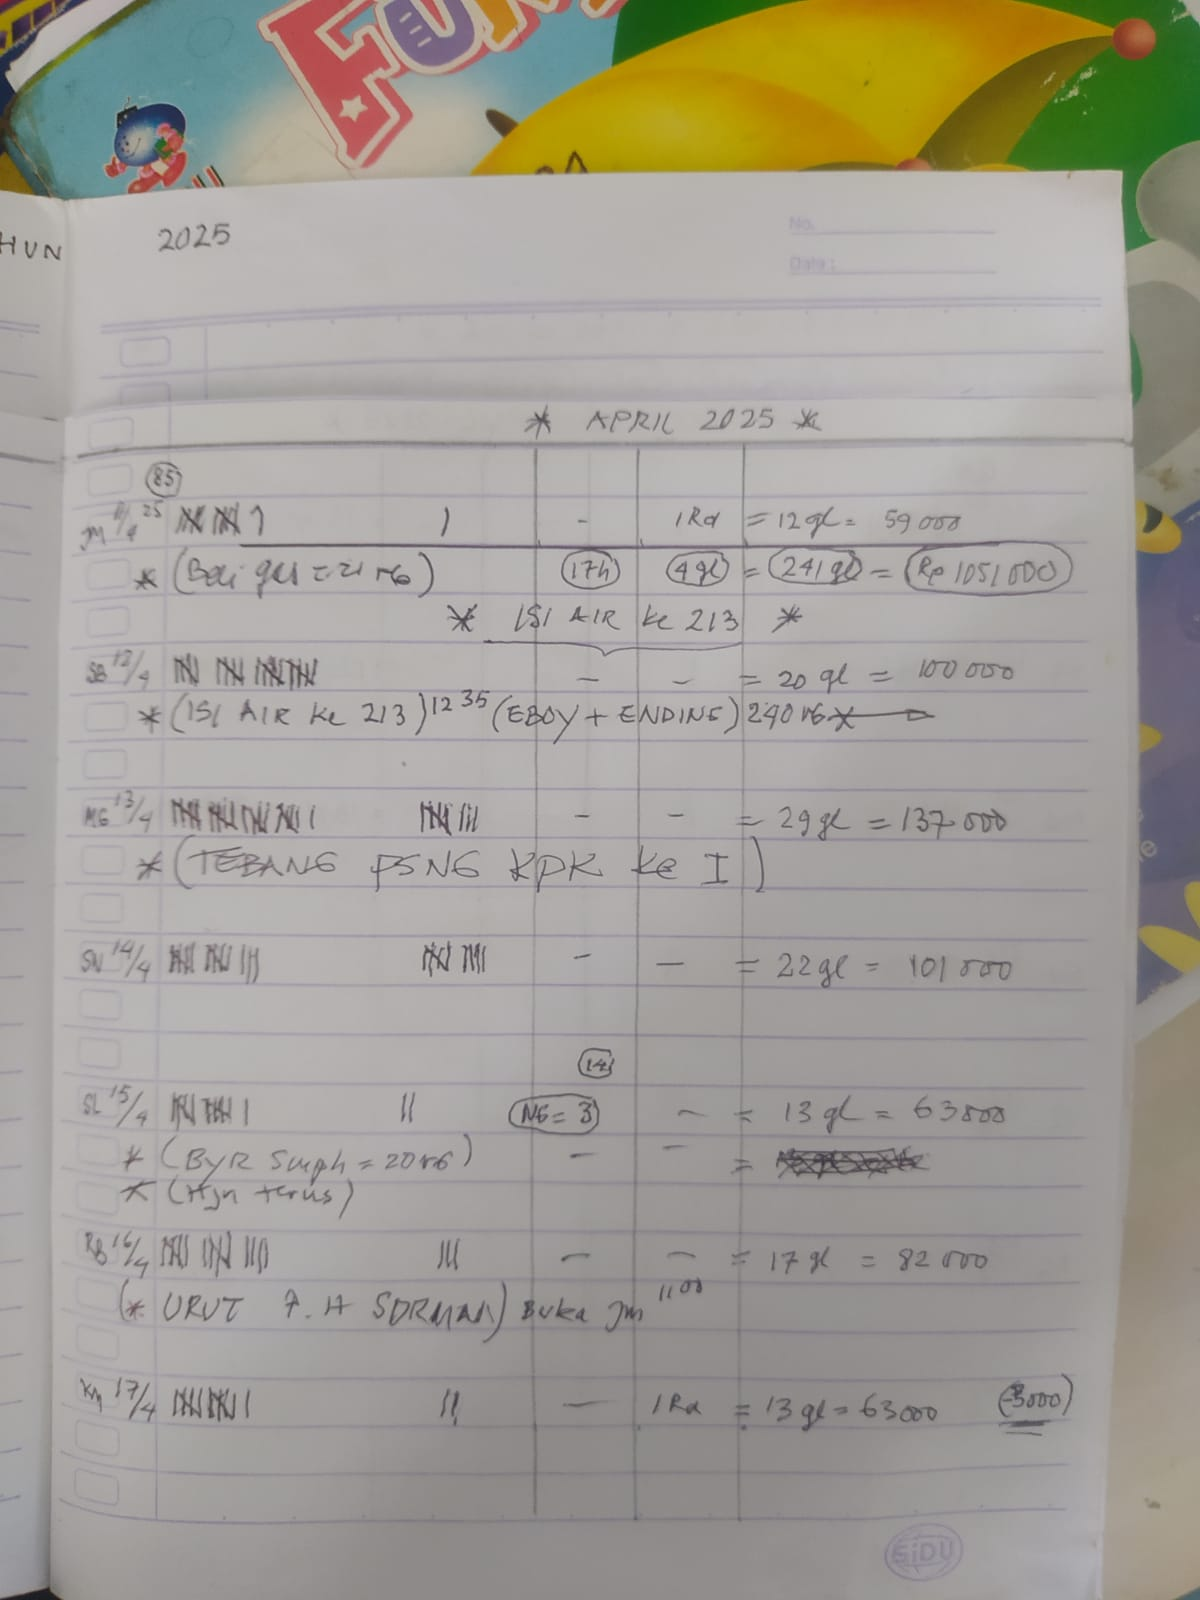 FUN
HUN
2025
No.
Date :
* APRIL 2025 *
85
Jm 11/4 25 - 1 Rd = 12 gl = 59 000
* (Beli gas = 21 rb) 17h 4 gl = 241 gl = Rp 1051 000
* ISI AIR ke 213 *
SB 12/4 - - = 20 gl = 100 000
* (ISI AIR ke 213) 12 35 (EBOY + ENDING) 240 rb *
MG 13/4 - - = 29 gl = 137 000
* (TEBANG PSNG KPK ke I)
SN 14/4 - - = 22 gl = 101 000
14
SL 15/4 NG = 3 - = 13 gl = 63 000
* (BYR Smph = 20 rb) - - =
* (Hjn terus)
RB 16/4 - - = 17 gl = 82 000
(* URUT A. H SORMAN) BUKA Jm 11 00
KM 17/4 - 1 Rd = 13 gl = 63 000 (-3000)
SiDU